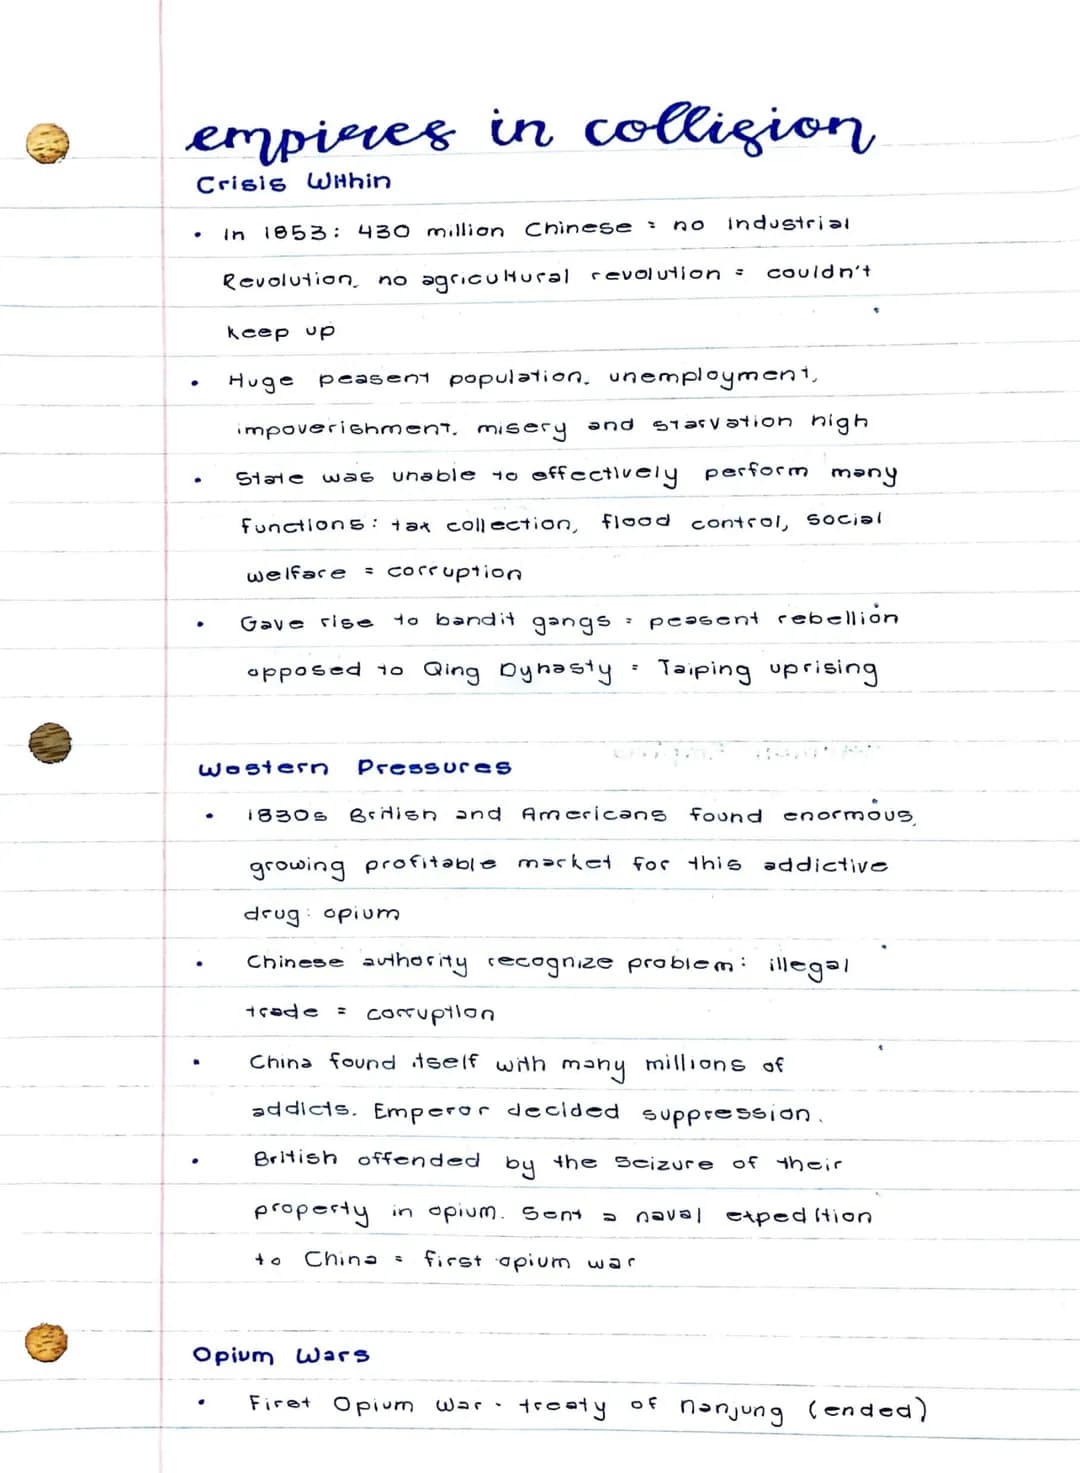 empires in collision
Crisis Within
• In 1853: 430 million Chinese = no Industrial
Revolution, no agricultural revolution = couldn't
keep up
• Huge peasent population, unemployment,
impoverishment, misery and starvation high
• State was unable to effectively perform many
functions: tax collection, flood control, social
welfare = corruption
• Gave rise to bandit gangs = peasent rebellion
opposed to Qing Dynasty = Taiping uprising
Western Pressures
• 1830s British and Americans found enormous,
growing profitable market for this addictive
drug: opium
• Chinese authority recognize problem: illegal
trade = corruption
• China found itself with many millions of
addicts. Emperor decided suppression.
• British offended by the seizure of their
property in opium. Sent a naval expedition
to China = first opium war
Opium Wars
• First Opium War - treaty of nanjung (ended)